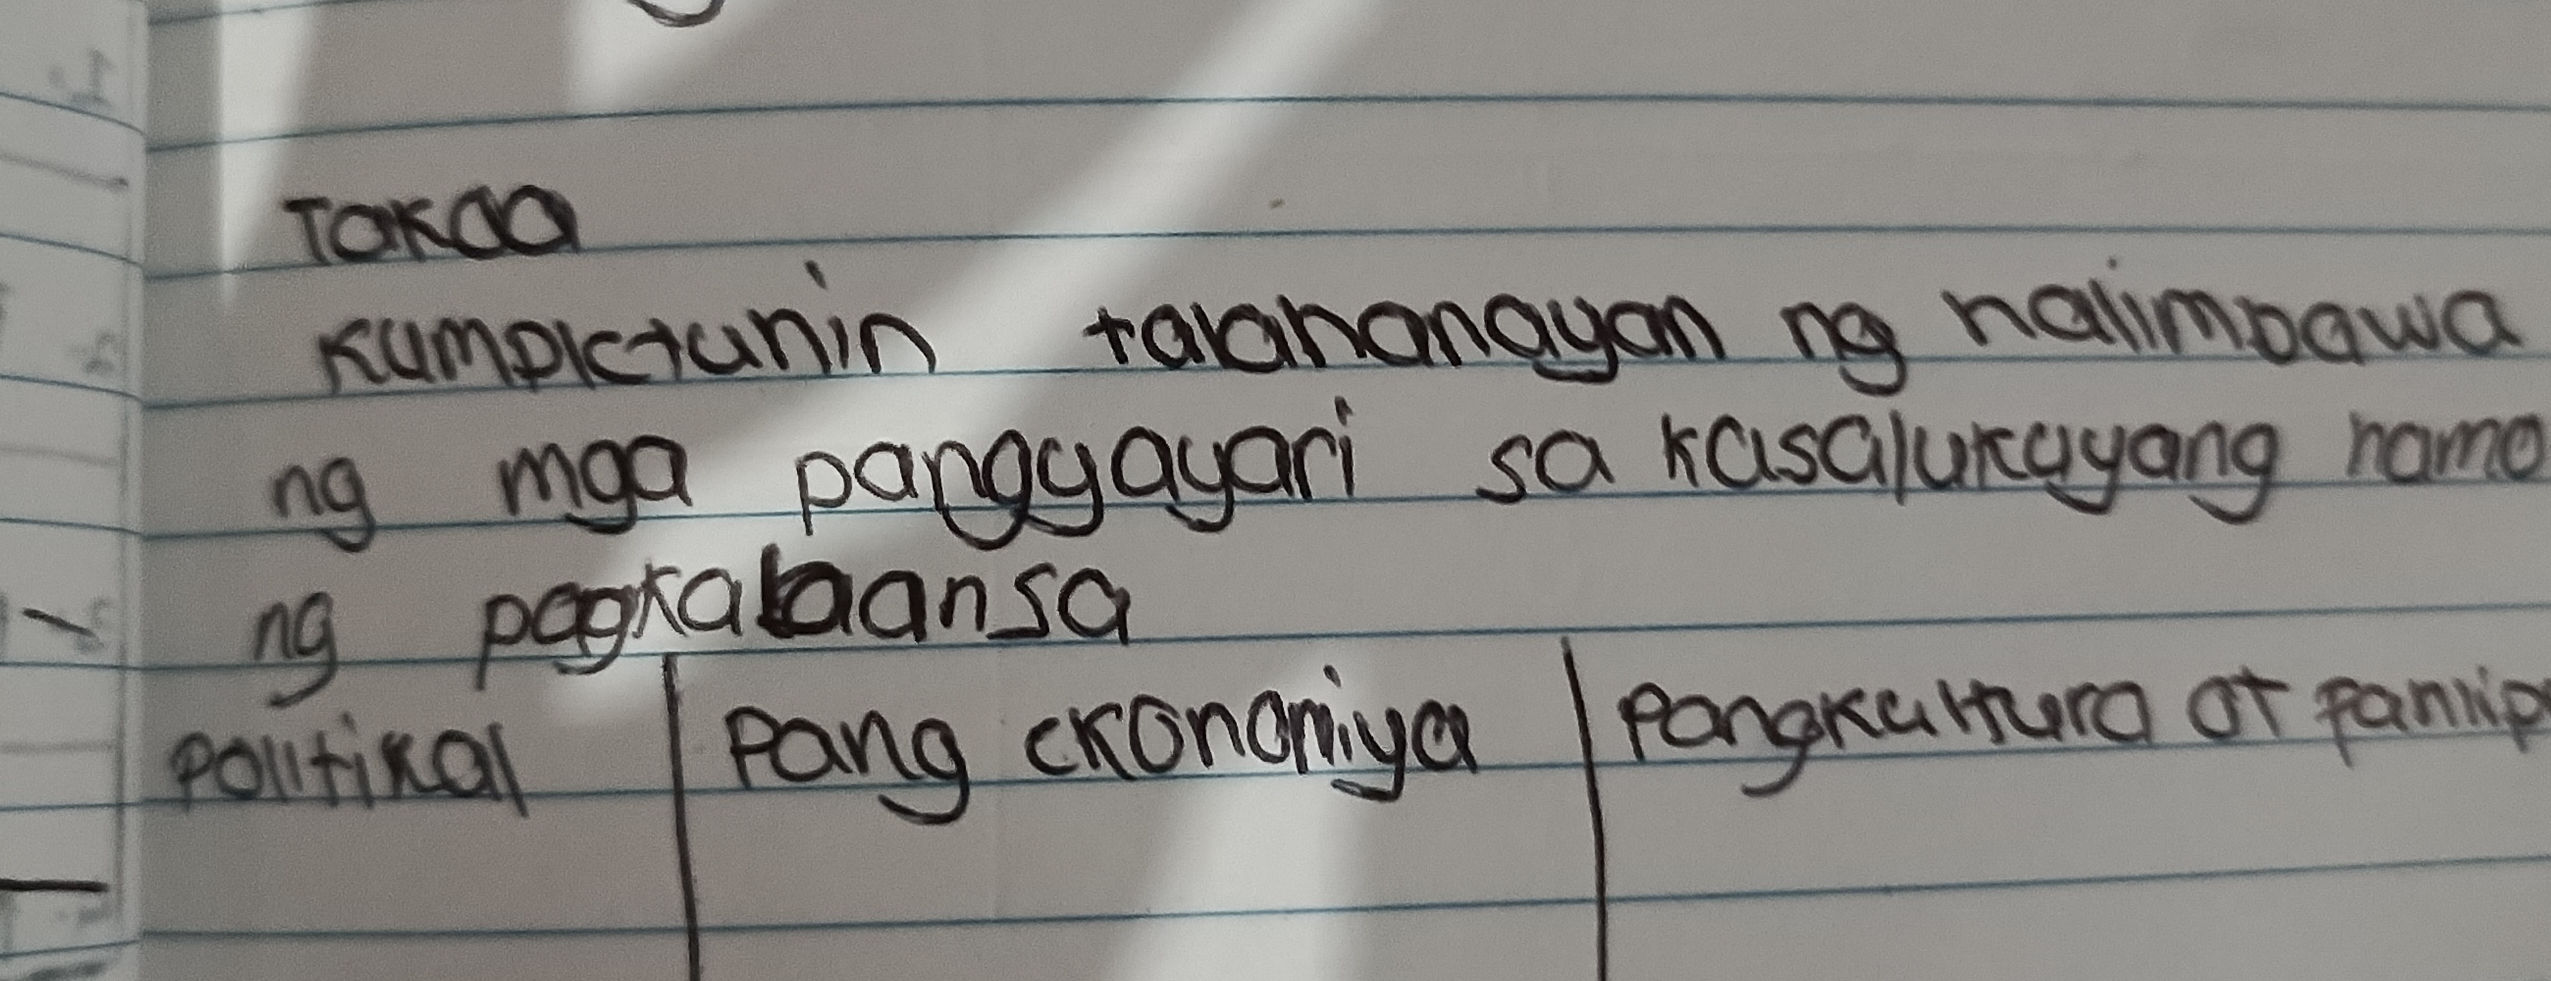 Takda
Kumpletunin talahanayan ng halimbawa
ng mga pangyayari sa kasalukuyang hamo
ng pagkabaansa
Politikal Pang ekonomiya Pangkultura at panlip